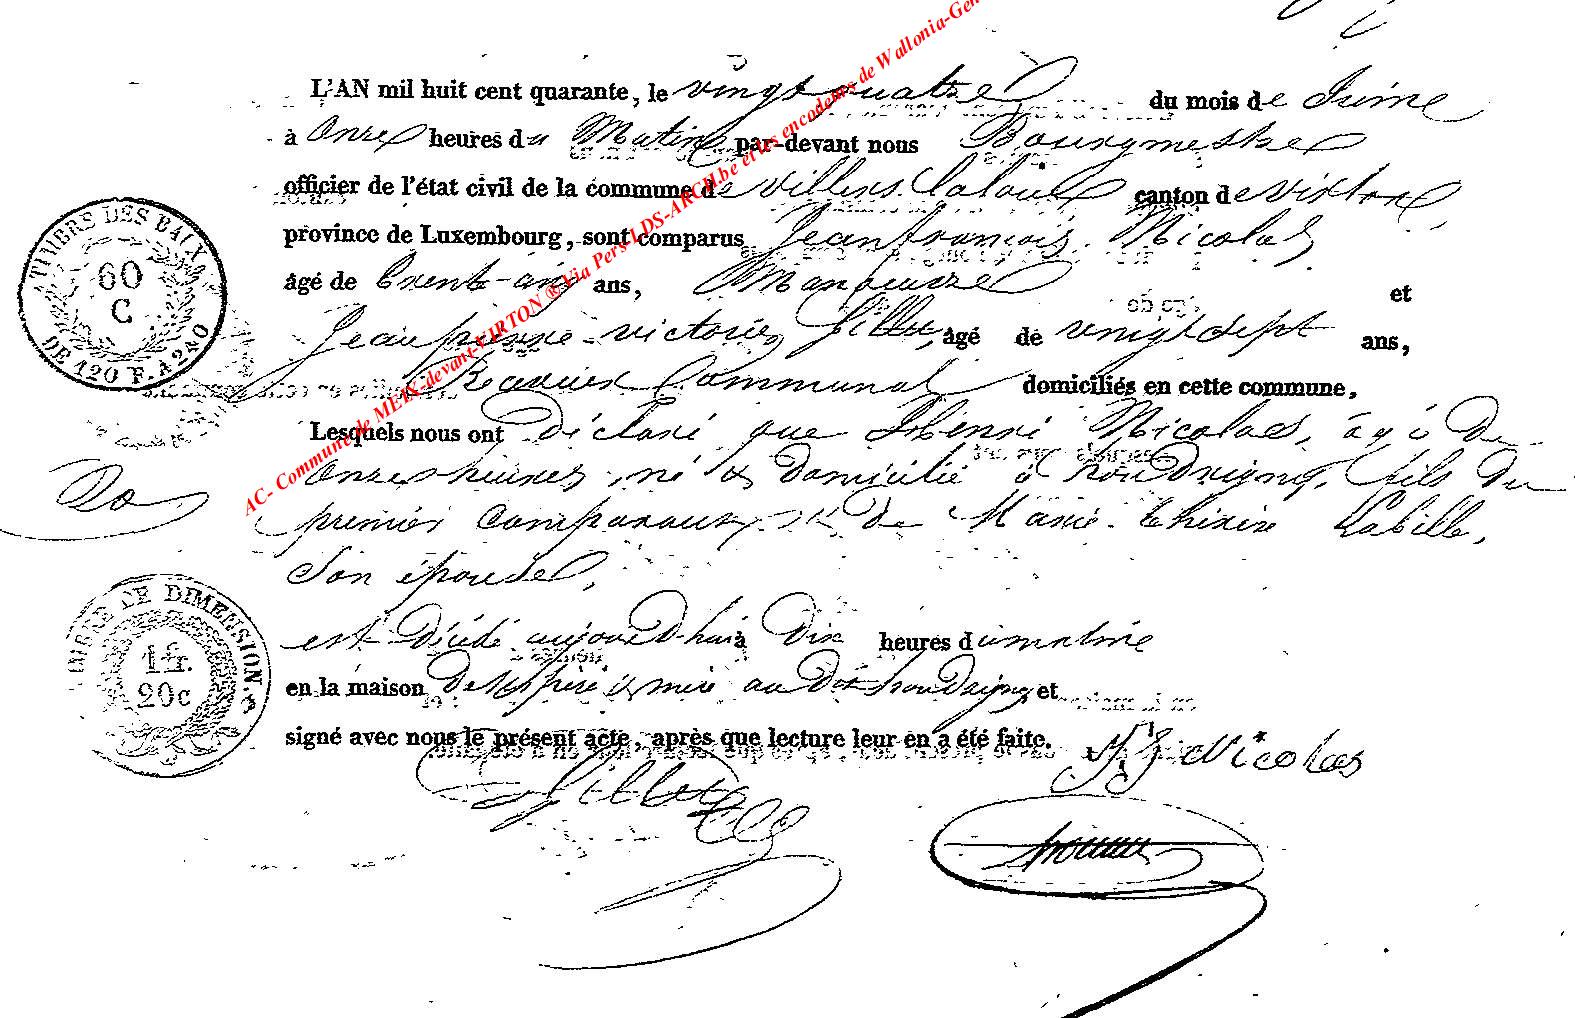 L'AN mil huit cent quarante, le vingt quatre du mois de Juine
à Onze heures du Matin par-devant nous Bourgmestre
officier de l'état civil de la commune de villers Laloue canton de virton
province de Luxembourg, sont comparus Jean françois Nicolas
âgé de trent-un ans, Manoeuvre et
Jean pierre victorien Gillet, âgé de vingt sept ans,
Receveur Communal domiciliés en cette commune.
Lesquels nous ont déclaré que Henri Nicolas, âgé de
onze heures, né & domicilié à houdrigny, fils du
premier Comparant & de Marie thérèse Labille,
Son épouse,
est décédé aujourd'hui à Dix heures du matin
en la maison de ses père & mère au dit houdrigny, et
signé avec nous le présent acte, après que lecture leur en a été faite.
JF Nicolas
Gillet
TIMBRE DES BAUX
60
C
DE 120 F. A 240
TIMBRE DE DIMENSION.
1 fr.
20c
AC- Commune de MEIX-devant-VIRTON ® Via Pers-LDS-ARCH.be et les encodeurs de Wallonia-Gen